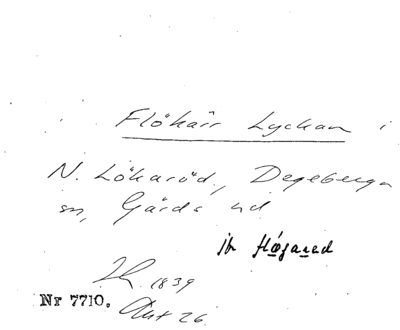 Flökärr Lyckan i
N. Lökaröd, Degeberga
sn, Gärds hd
jfr
1839
Nr 7710. Akt 26